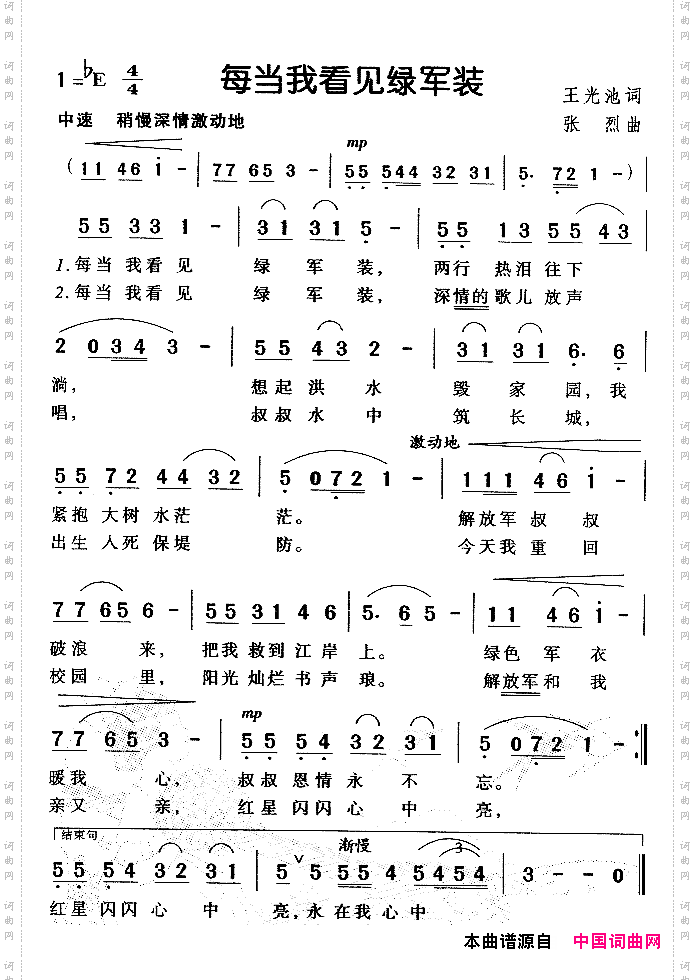 每当我看见绿军装
1=♭E 4/4
王光池词
中速 稍慢深情激动地
张 烈曲
mp
(11 46 i - | 77 65 3 - | 55 544 32 31 | 5. 72 1 -)
55 33 1 - | 31 31 5 - | 55 13 55 43
1.每当 我看 见 绿 军 装, 两行 热泪 往下
2.每当 我看 见 绿 军 装, 深情的 歌儿 放声
2 034 3 - | 55 43 2 - | 31 31 6. 6
淌, 想起 洪 水 毁 家 园,我
唱, 叔叔 水 中 筑 长 城,
激动地
55 72 44 32 | 5 072 1 - | 111 46 i -
紧抱 大树 水茫 茫。 解放军 叔 叔
出生 入死 保堤 防。 今天我 重 回
77 65 6 - | 55 31 46 | 5. 65 - | 11 46 i -
破浪 来, 把我 救到 江岸 上。 绿色 军 衣
校园 里, 阳光 灿烂 书声 琅。 解放军 和 我
mp
77 65 3 - | 55 54 32 31 | 5 072 1 - :||
暖我 心, 叔叔 恩情 永 不 忘。
亲又 亲, 红星 闪闪 心 中 亮,
结束句
渐慢
3
55 54 32 31 | 5 ∨ 5 554 5454 | 3 - - 0 ||
红星 闪闪 心 中 亮,永 在我 心中
本曲谱源自 中国词曲网
词曲网